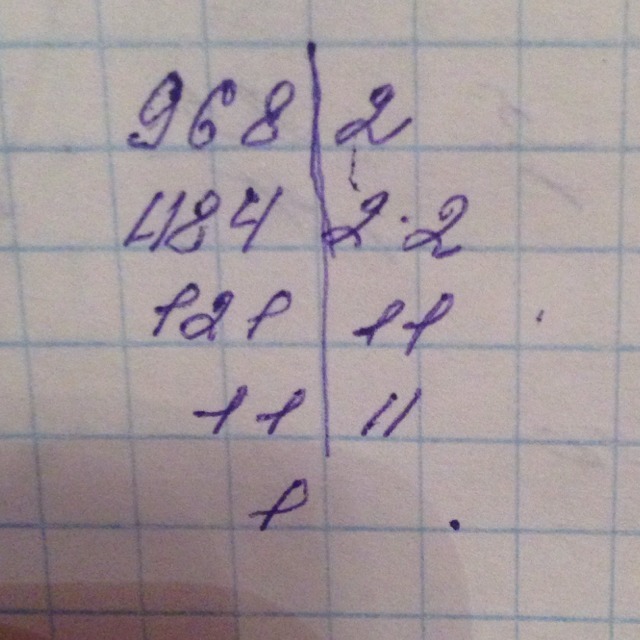 968 | 2
484 | 2·2
121 | 11
11 | 11
1